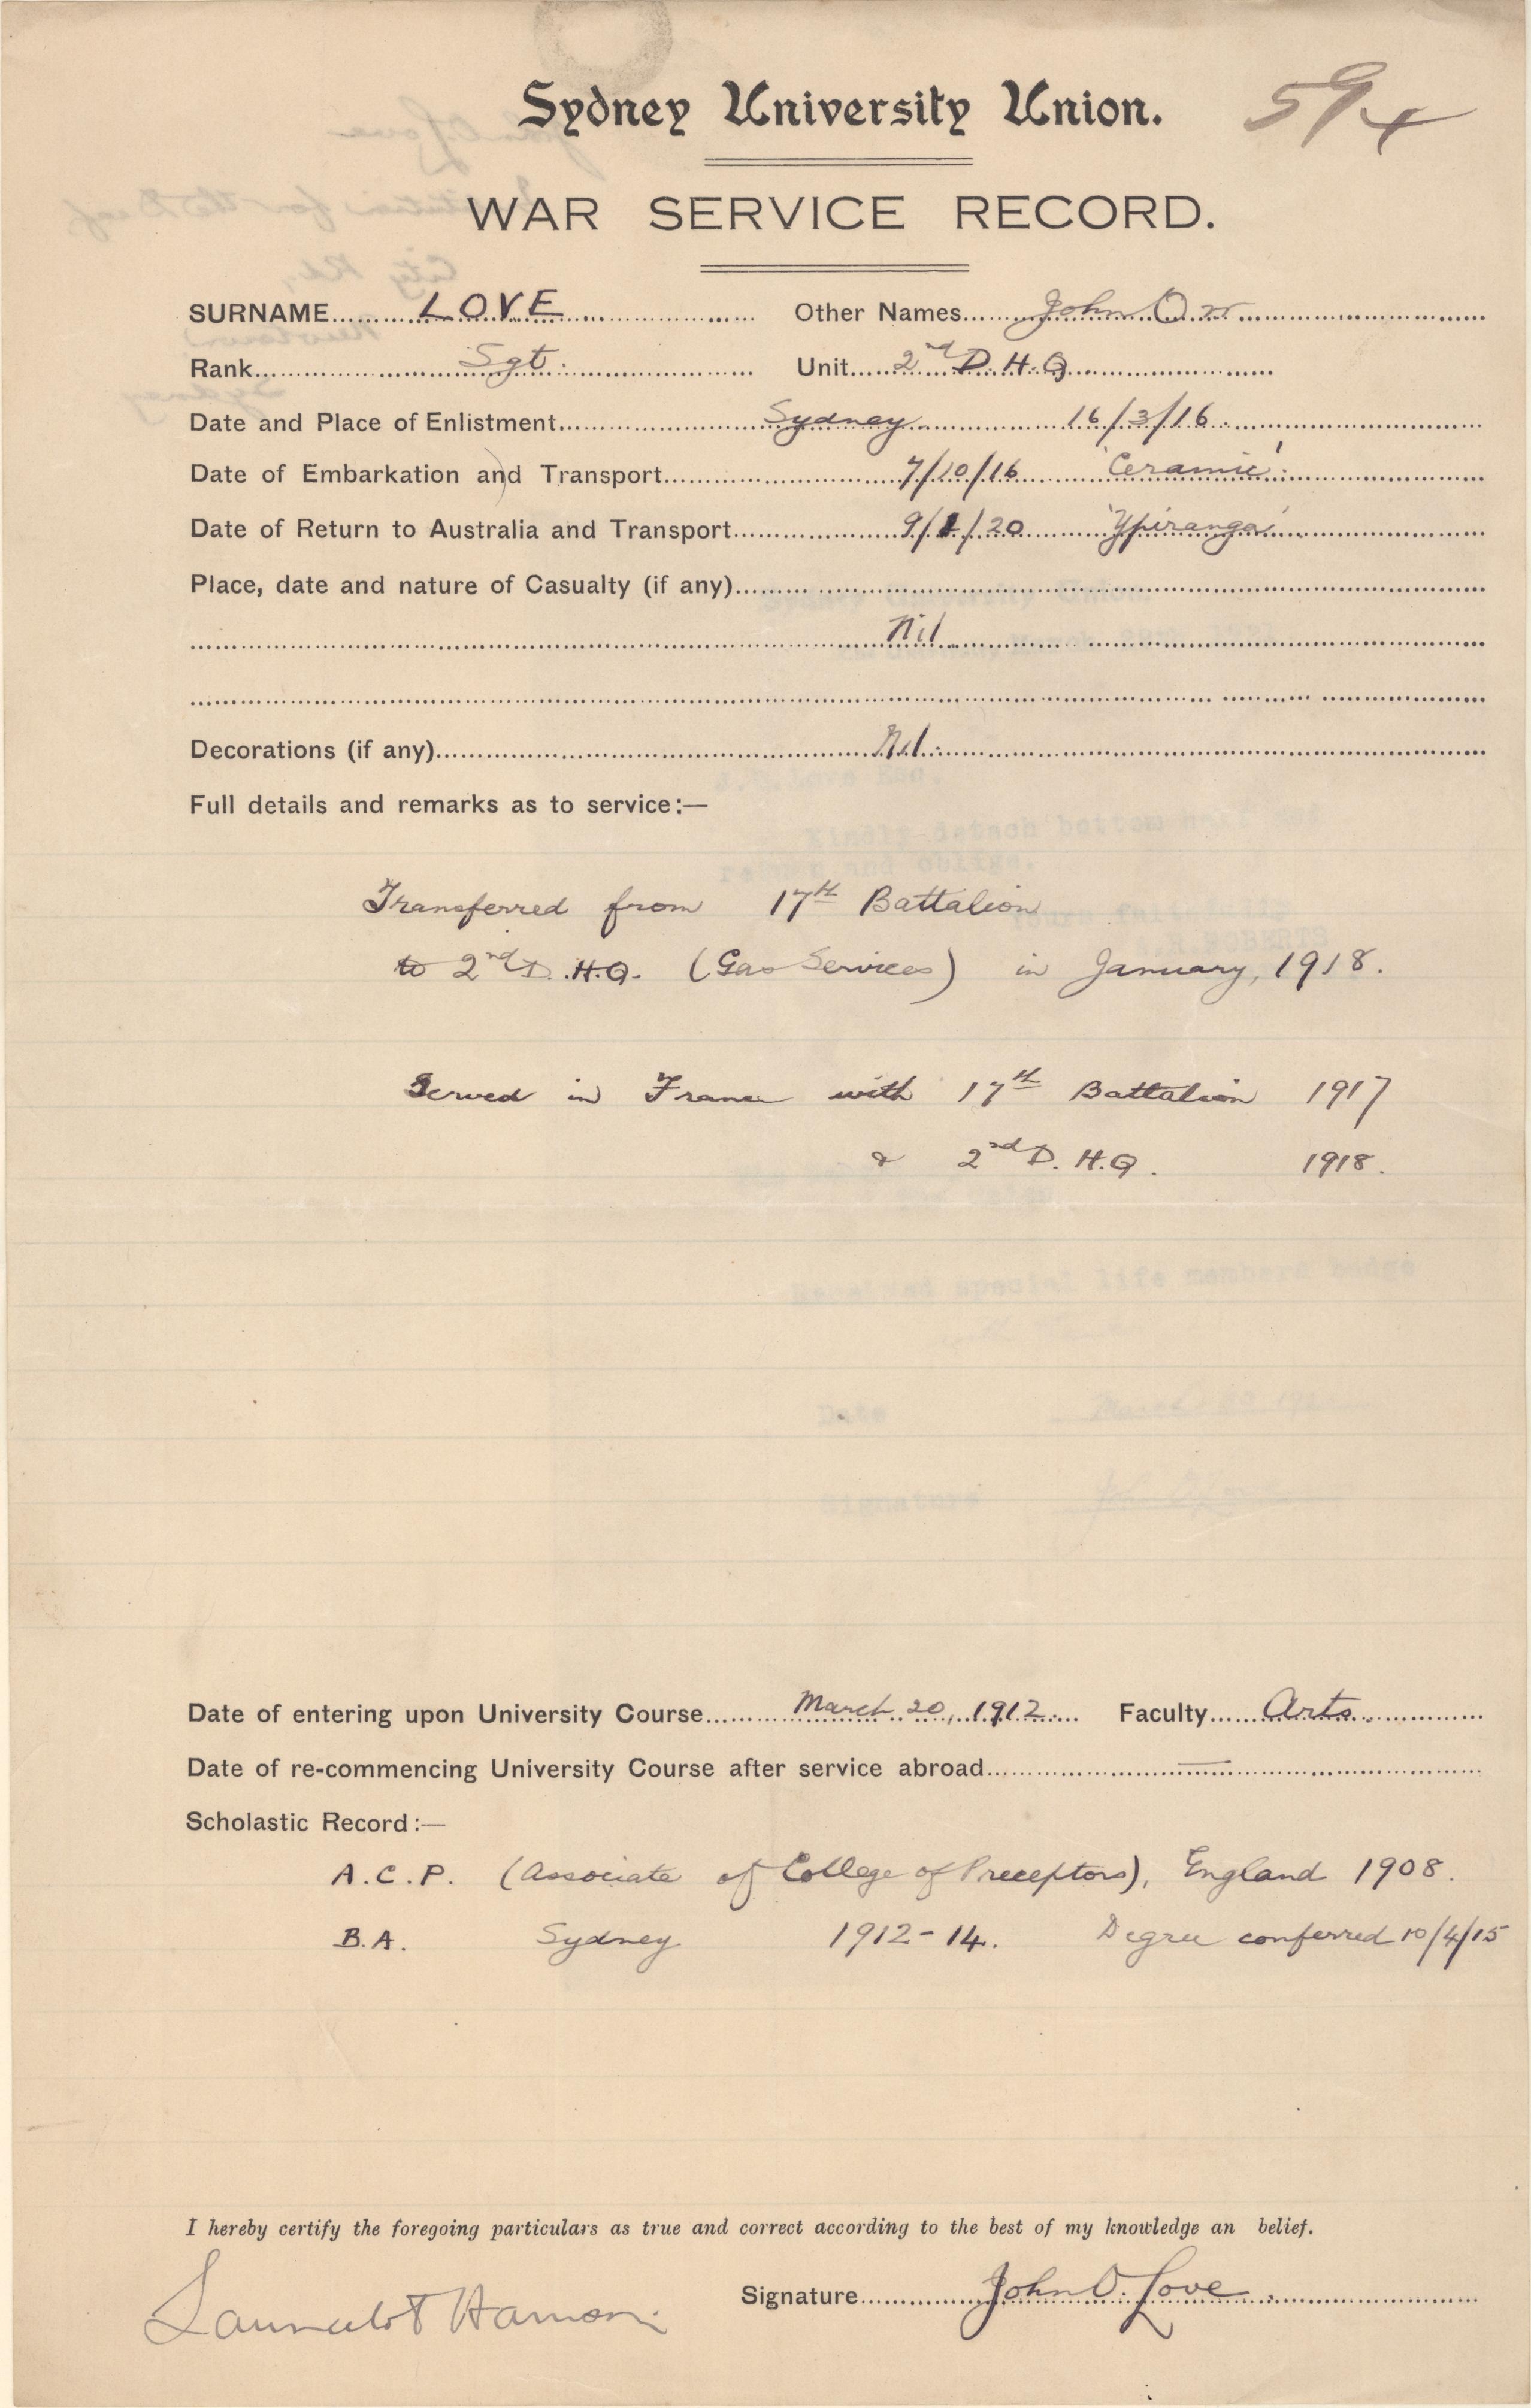 Sydney University Union.
594
WAR SERVICE RECORD.
SURNAME LOVE Other Names John Orr
Rank Sgt. Unit 2nd D.H.Q.
Date and Place of Enlistment Sydney 16/3/16
Date of Embarkation and Transport 7/10/16 'Ceramic'.
Date of Return to Australia and Transport 9/1/20 'Ypiranga'
Place, date and nature of Casualty (if any)
Nil
Decorations (if any) Nil.
Full details and remarks as to service:—
Transferred from 17th Battalion
to 2nd D.H.Q. (Gas Services) in January, 1918.
Served in France with 17th Battalion 1917
& 2nd D.H.Q. 1918.
Date of entering upon University Course March 20, 1912. Faculty Arts.
Date of re-commencing University Course after service abroad —
Scholastic Record:—
A.C.P. (Associate of College of Preceptors), England 1908.
B.A. Sydney 1912-14. Degree conferred 10/4/15
I hereby certify the foregoing particulars as true and correct according to the best of my knowledge an belief.
Signature John O. Love
Launcelot Harrison